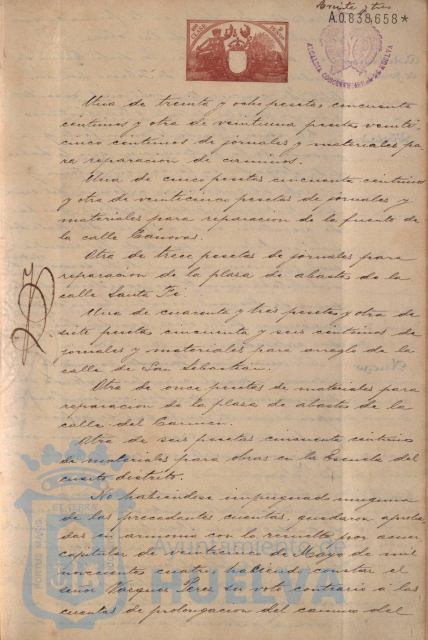 Veinte y tres
A.0.838.658*
ALCALDIA CONSTITUCIONAL DE HUELVA
Una de treinta y ocho pesetas cincuenta
centimos y otra de veintiuna pesetas veinti
cinco centimos de jornales y materiales pa
ra reparacion de caminos.
Una de cinco pesetas cincuenta centimos
y otra de veinticinco pesetas de jornales y
materiales para reparacion de la fuente de
la calle Cánovas.
Otra de trece pesetas de jornales para
reparacion de la plaza de abastos de la
calle Santa Fé.
Una de cuarenta y tres pesetas y otra de
siete pesetas cincuenta y seis centimos de
jornales y materiales para arreglo de la
calle de San Sebastian.
Otra de once pesetas de materiales para
reparacion de la plaza de abastos de la
calle del Carmen.
Otra de seis pesetas cincuenta centimos
de materiales para obras en la Escuela del
cuarto distrito.
No habiendose impugnado ninguna
de las precedentes cuentas, quedaron aproba
das en armonia con lo resuelto por acuer
capitular de veintitres de Marzo de mil
novecientos cuatro, haciendo constar el
señor Vazquez Perez su voto contrario a las
cuentas de prolongacion del camino del
Ayuntamiento de
HUELVA